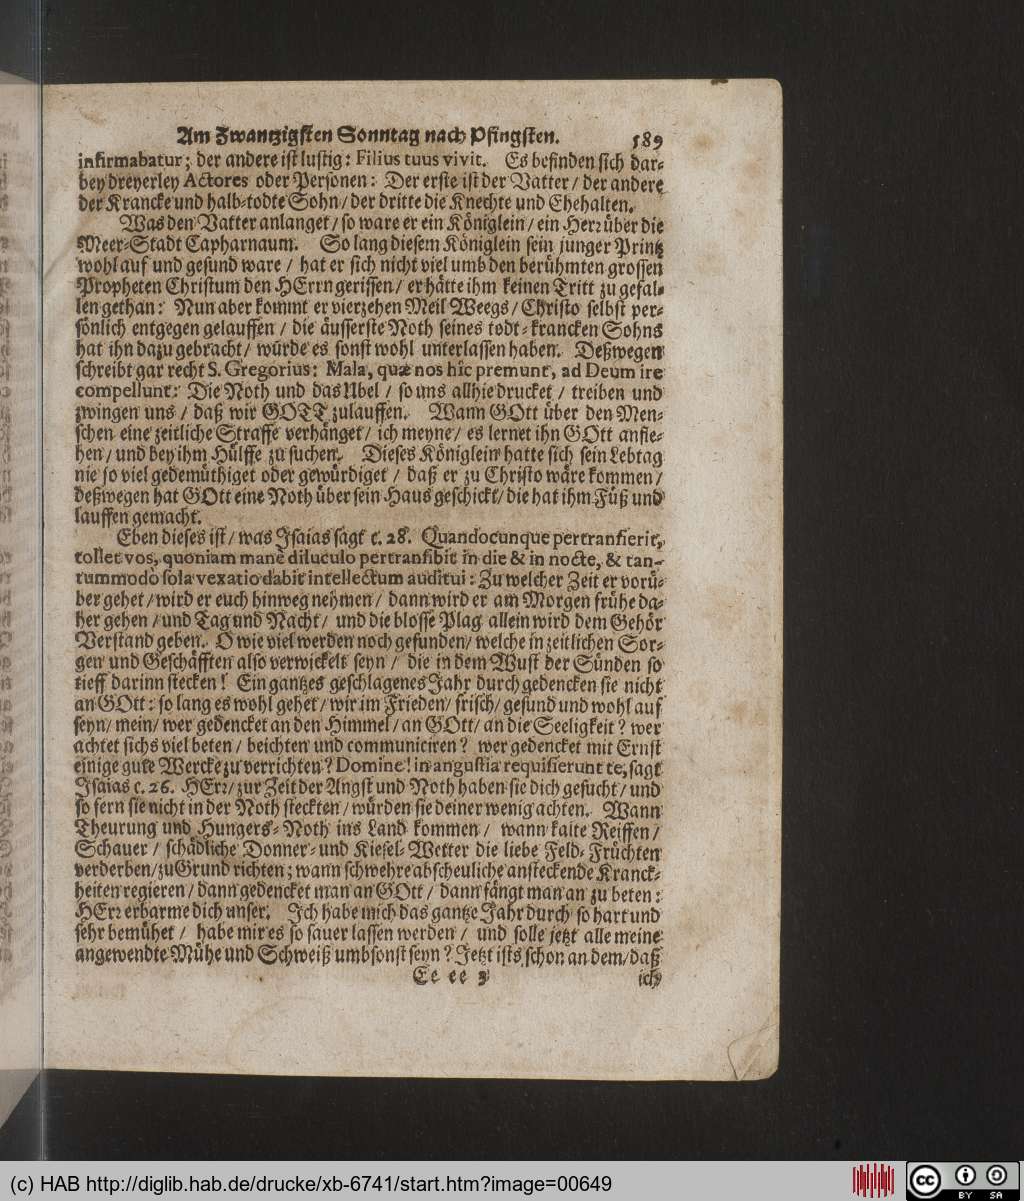 Am Zwantzigsten Sonntag nach Pfingsten. 589
infirmabatur; der andere ist lustig: Filius tuus vivit. Es befinden sich dar-
bey dreyerley Actores oder Personen: Der erste ist der Vatter / der andere
der Krancke und halb-todte Sohn / der dritte die Knechte und Ehehalten.
Was den Vatter anlanget / so ware er ein Königlein / ein Herr über die
Meer-Stadt Capharnaum. So lang diesem Königlein sein junger Printz
wohl auf und gesund ware / hat er sich nicht viel umb den berühmten grossen
Propheten Christum den HErrn gerissen / er hätte ihm keinen Tritt zu gefal-
len gethan: Nun aber kommt er vierzehen Meil Weegs / Christo selbst per-
sönlich entgegen gelauffen / die äusserste Noth seines todt-krancken Sohns
hat ihn dazu gebracht / würde es sonst wohl unterlassen haben. Deßwegen
schreibt gar recht S. Gregorius: Mala, quæ nos hîc premunt, ad Deum ire
compellunt: Die Noth und das Ubel / so uns allhie drucket / treiben und
zwingen uns / daß wir GOTT zulauffen. Wann GOtt über den Men-
schen eine zeitliche Straffe verhänget / ich meyne / es lernet ihn GOtt anfle-
hen / und bey ihm Hülffe zu suchen. Dieses Königlein hatte sich sein Lebtag
nie so viel gedemüthiget oder gewürdiget / daß er zu Christo wäre kommen /
deßwegen hat GOtt eine Noth über sein Haus geschickt / die hat ihm Füß und
lauffen gemacht.
Eben dieses ist / was Isaias sagt c. 28. Quandocunque pertransierit,
tollet vos, quoniam manè diluculo pertransibit in die & in nocte, & tan-
tummodò sola vexatio dabit intellectum auditui: Zu welcher Zeit er vorü-
ber gehet / wird er euch hinweg nehmen / dann wird er am Morgen frühe da-
her gehen / und Tag und Nacht / und die blosse Plag allein wird dem Gehör
Verstand geben. O wie viel werden noch gefunden / welche in zeitlichen Sor-
gen und Geschäfften also verwickelt seyn / die in dem Wust der Sünden so
tieff darinn stecken! Ein gantzes geschlagenes Jahr durch gedencken sie nicht
an GOtt: so lang es wohl gehet / wir im Frieden / frisch / gesund und wohl auf
seyn / mein / wer gedencket an den Himmel / an GOtt / an die Seeligkeit? wer
achtet sichs viel beten / beichten und communiciren? wer gedencket mit Ernst
einige gute Wercke zu verrichten? Domine! in angustia requisierunt te, sagt
Isaias c. 26. HErr / zur Zeit der Angst und Noth haben sie dich gesucht / und
so fern sie nicht in der Noth steckten / würden sie deiner wenig achten. Wann
Theurung und Hungers-Noth ins Land kommen / wann kalte Reiffen /
Schauer / schädliche Donner- und Kiesel-Wetter die liebe Feld-Früchten
verderben / zu Grund richten; wann schwehre abscheuliche ansteckende Kranck-
heiten regieren / dann gedencket man an GOtt / dann fängt man an zu beten:
HErr erbarme dich unser. Ich habe mich das gantze Jahr durch so hart und
sehr bemühet / habe mir es so sauer lassen werden / und solle jetzt alle meine
angewendte Mühe und Schweiß umbsonst seyn? Jetzt ists schon an dem / daß
Ee ee 3 ich
(c) HAB http://diglib.hab.de/drucke/xb-6741/start.htm?image=00649
cc BY SA